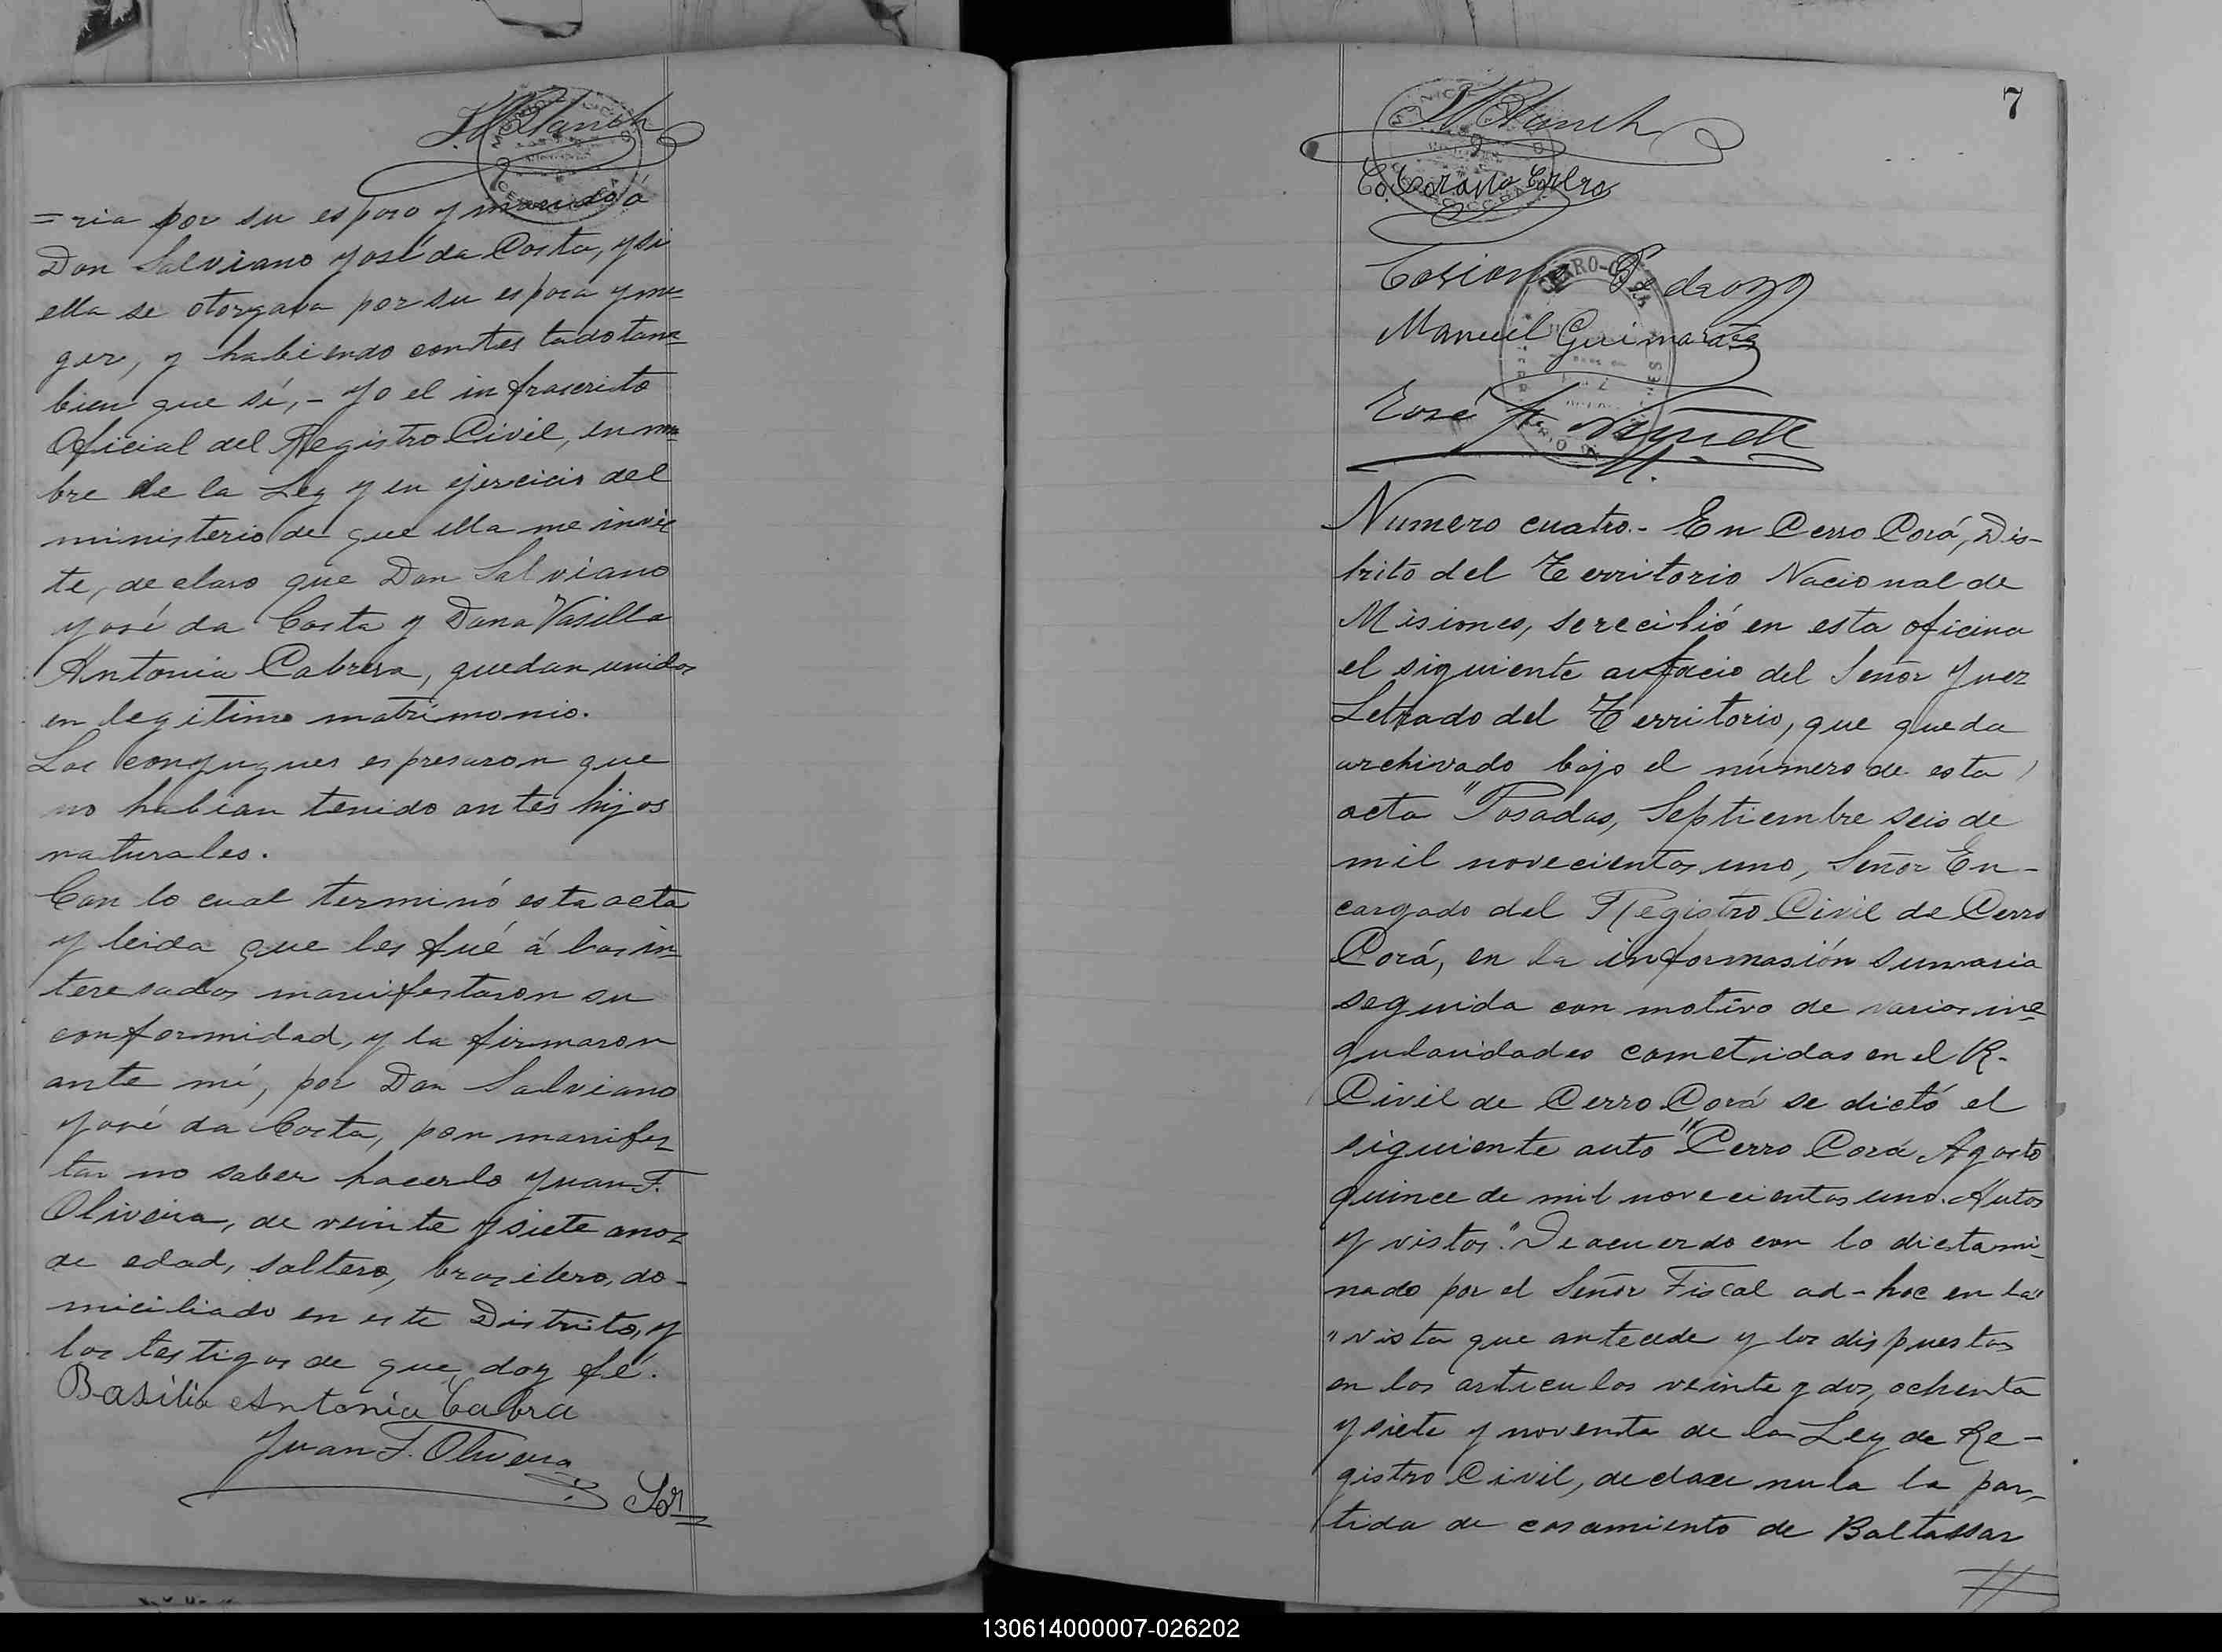 =ria por su esposo y marido á
Don Salviano José da Costa, y si
ella se otorgava por su esposa y mu=
ger, y habiendo contestado tam=
bien que sí,- Yo el infrascrito
Oficial del Registro Civil, en nom
bre de la Ley y en ejercicio del
ministerio de que ella me invis
te, declaro que Don Salviano
José da Costa y Dona Vasilla
Antonia Cabrera, quedan unidos
en legitimo matrimonio.
Los conyugues espresaron que
no habian tenido antes hijos
naturales.
Con lo cual terminó esta acta
y leida que les fué á los in=
teresados manifestaron su
conformidad, y la firmaron
ante mí, por Don Salviano
José da Costa, por manifes
tar no saber hacerlo Juan F.
Oliveira, de veinte y siete anos
de edad, soltero, brasilero, do-
miciliado en este Distrito, y
los testigos de que doy fé.
Basilia Antonia Cabra
Juan F. Oliveira
7
Manuel Guimaraes
José
Numero cuatro.- En Cerro Corá, Dis-
trito del Territorio Nacional de
Misiones, se recibió en esta oficina
el siguiente del Señor Juez
Letrado del Territorio, que queda
archivado bajo el número de esta
acta "Posadas, Septiembre seis de
mil novecientos uno, Señor En-
cargado del Registro Civil de Cerro
Corá, en la informasión sumaria
seguida con motivo de varios irre
gularidades cometidas en el R.
Civil de Cerro Corá se dictó el
siguiente auto "Cerro Corá Agosto
quince de mil novecientos uno. Autos
y vistos." De acuerdo con lo dictami-
nado por el Señor Fiscal ad-hoc en la"
"vista que antecede y los dispuestos
en los articulos veinte y dos, ochenta
y siete y noventa de la Ley de Re-
gistro Civil, declare nula la par-
tida de casamiento de Baltassar
130614000007-026202